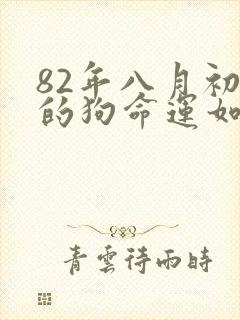 82年八月初
的狗命運如
青雲待雨時